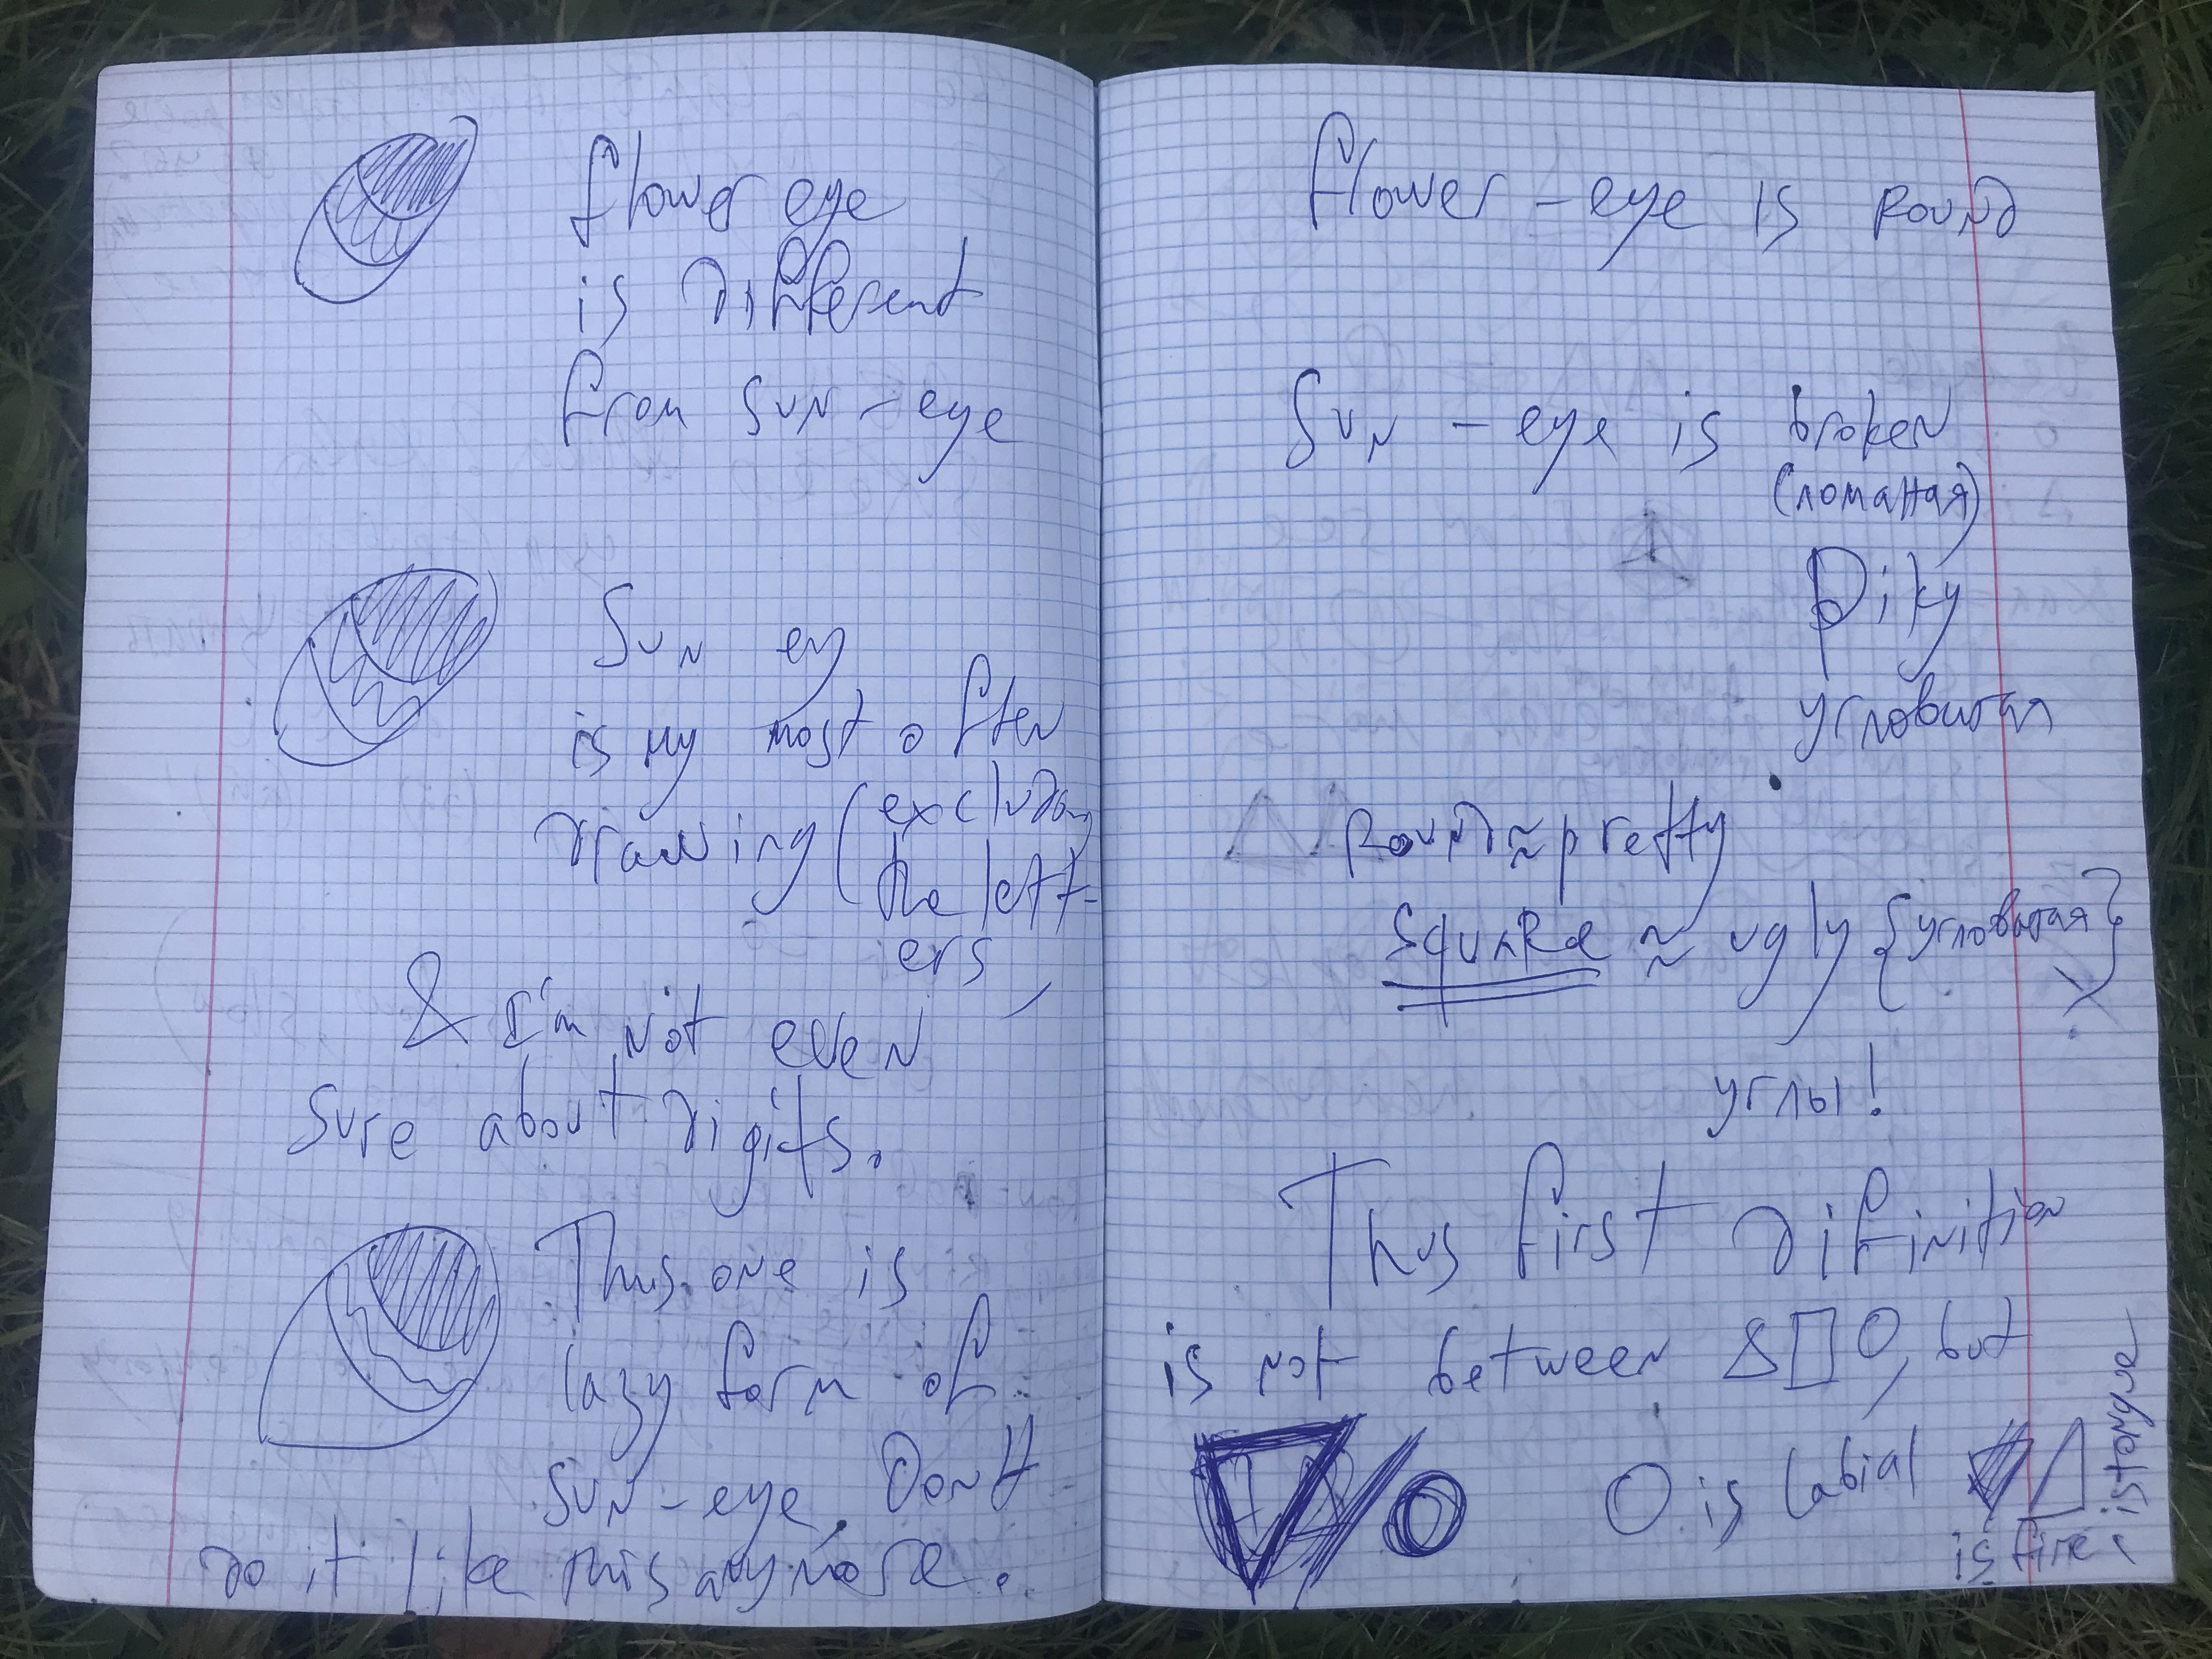 flower eye
is different
from sun-eye
Sun ey
is my most often
drawing (excluding
the lett-
ers,
& I'm not even
sure about digits.
This one is
lazy form of
sun-eye. Don't
do it like this anymore.
Flower-eye is round
Sun-eye is broken
(ломаная)
угловитая
round ≈ pretty
square ≈ ugly {угловатая}
углы!
This first
is not between & □ O, but
O is labial
is fire,
is tongue